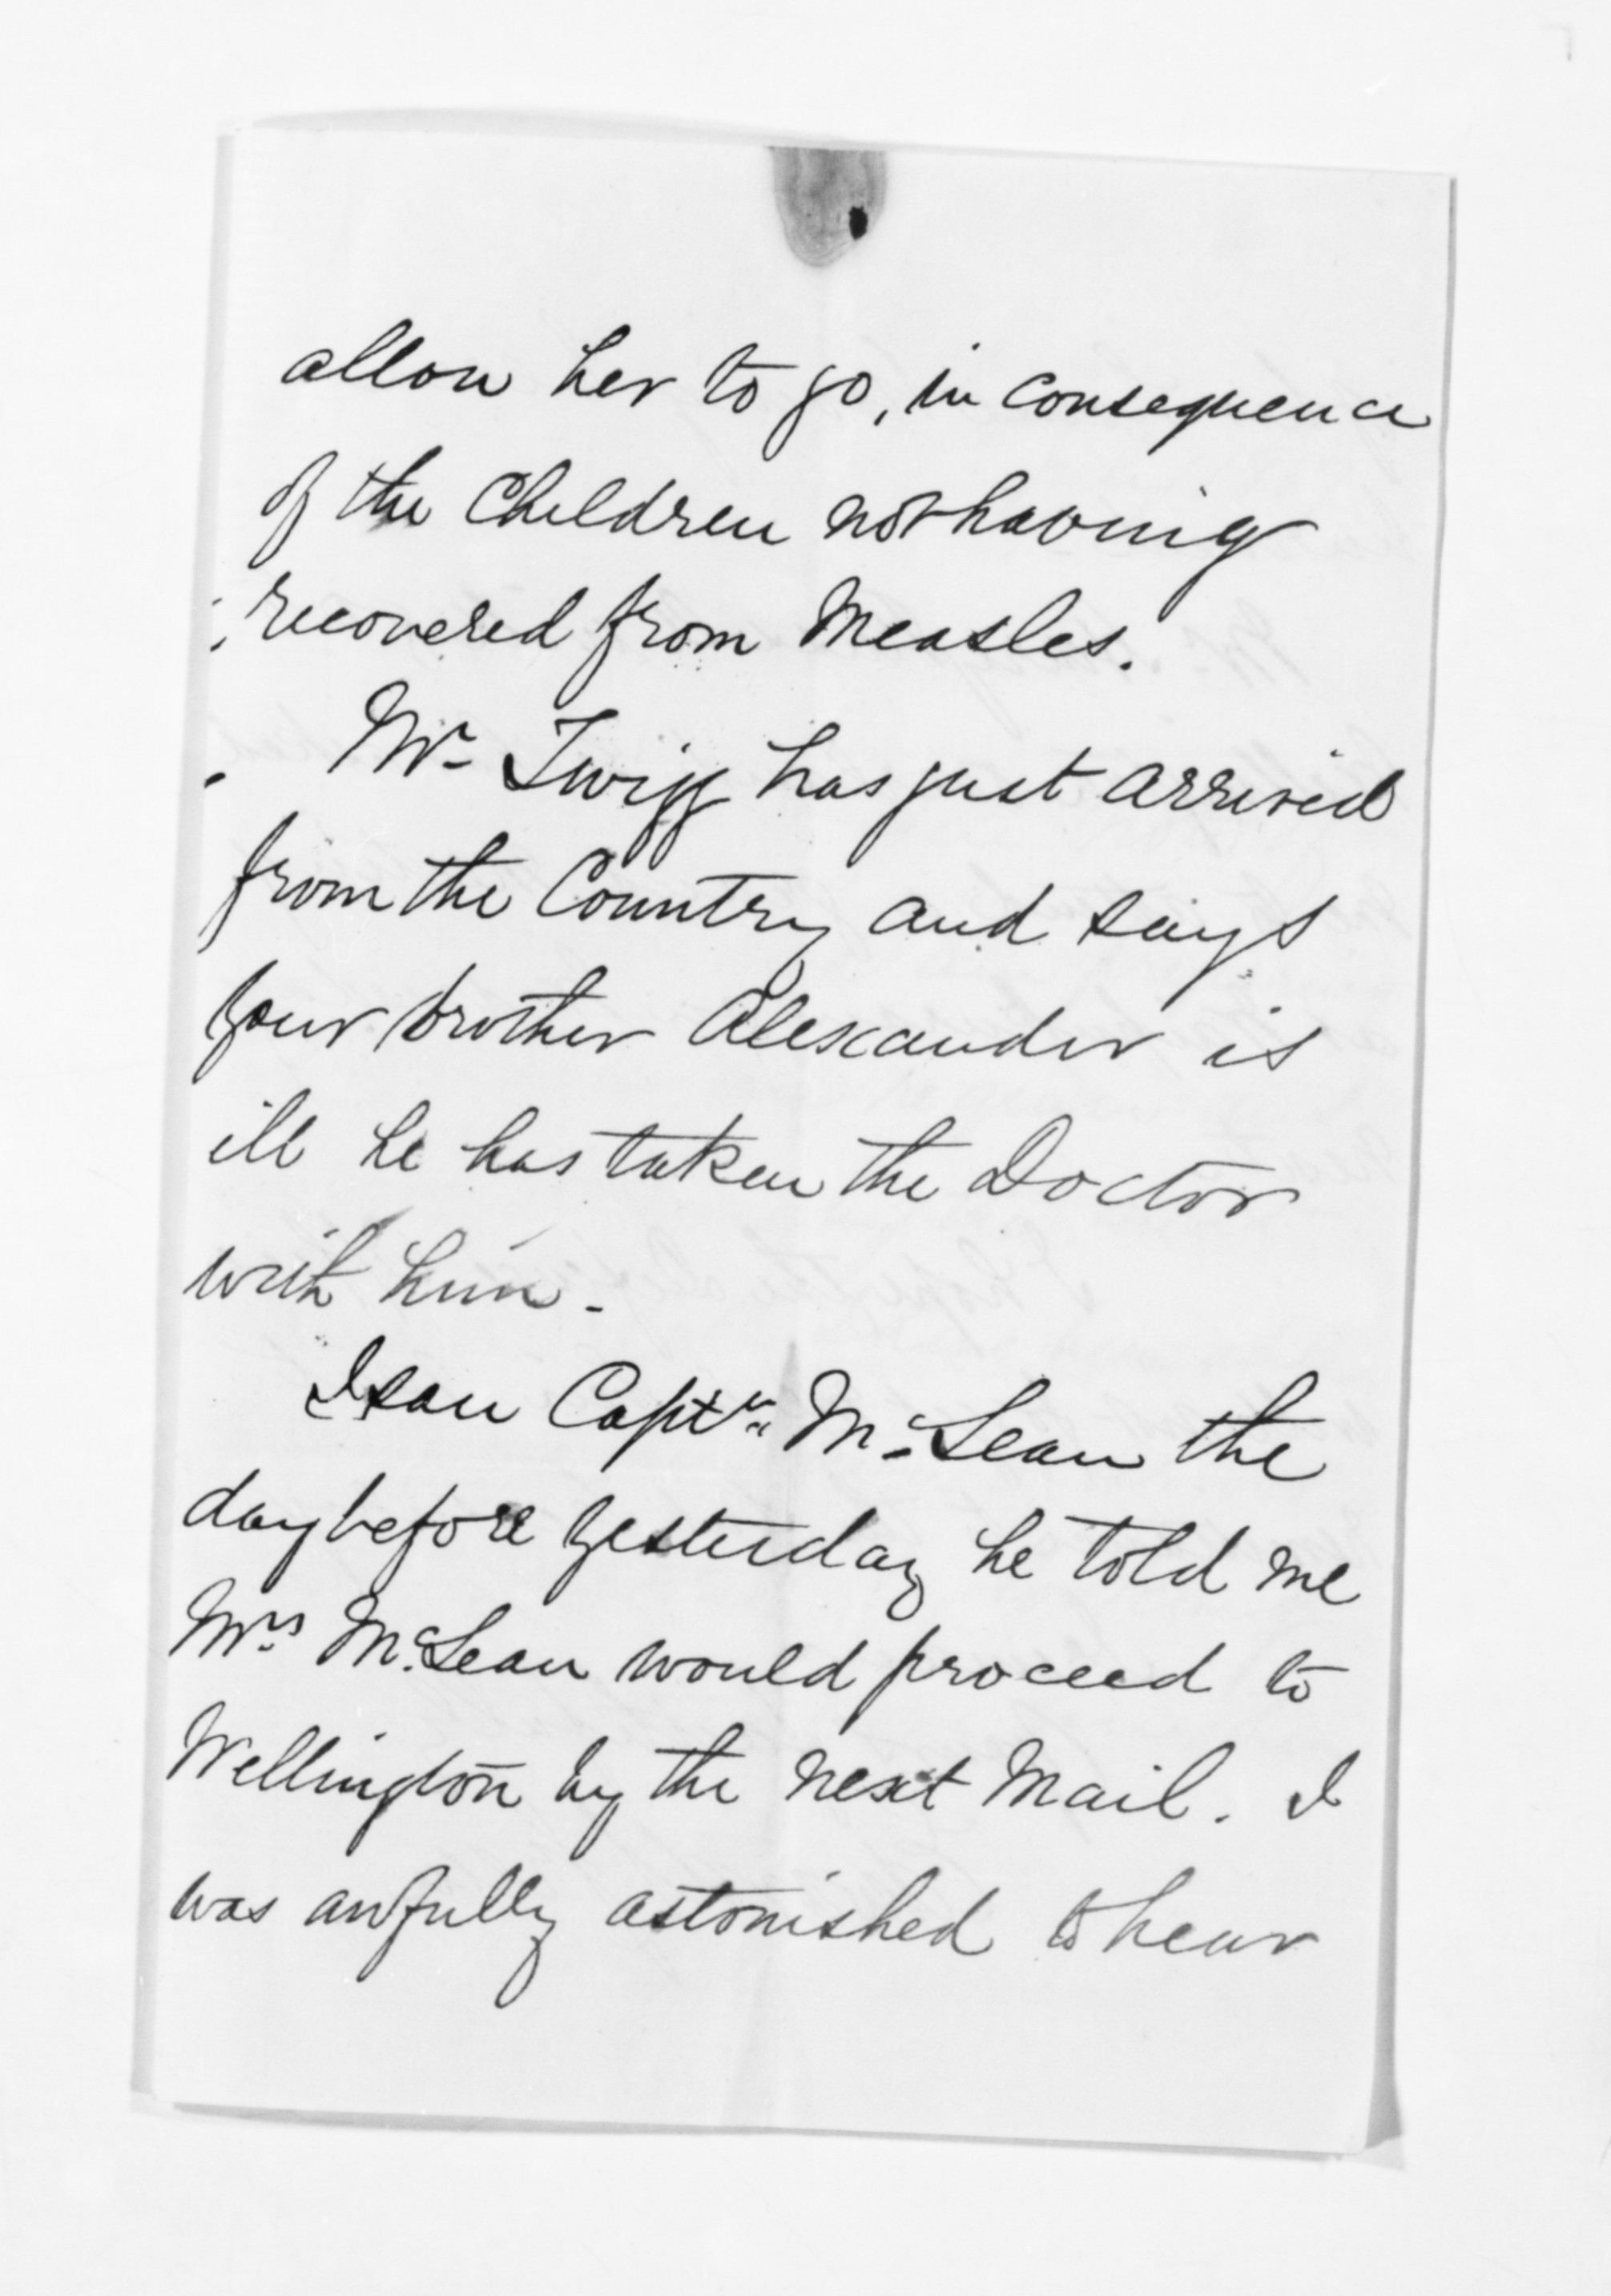 allow her to go, in consequence
of the Children not having
recovered from Measles.
Mr. Twigg has just arrived
from the Country and says
your brother Alexander is
ill he has taken the Doctor
with him.
I saw Captn McLean the
day before yesterday he told me
Mrs McLean would proceed to
Wellington by the next Mail. I
was awfully astonished to hear